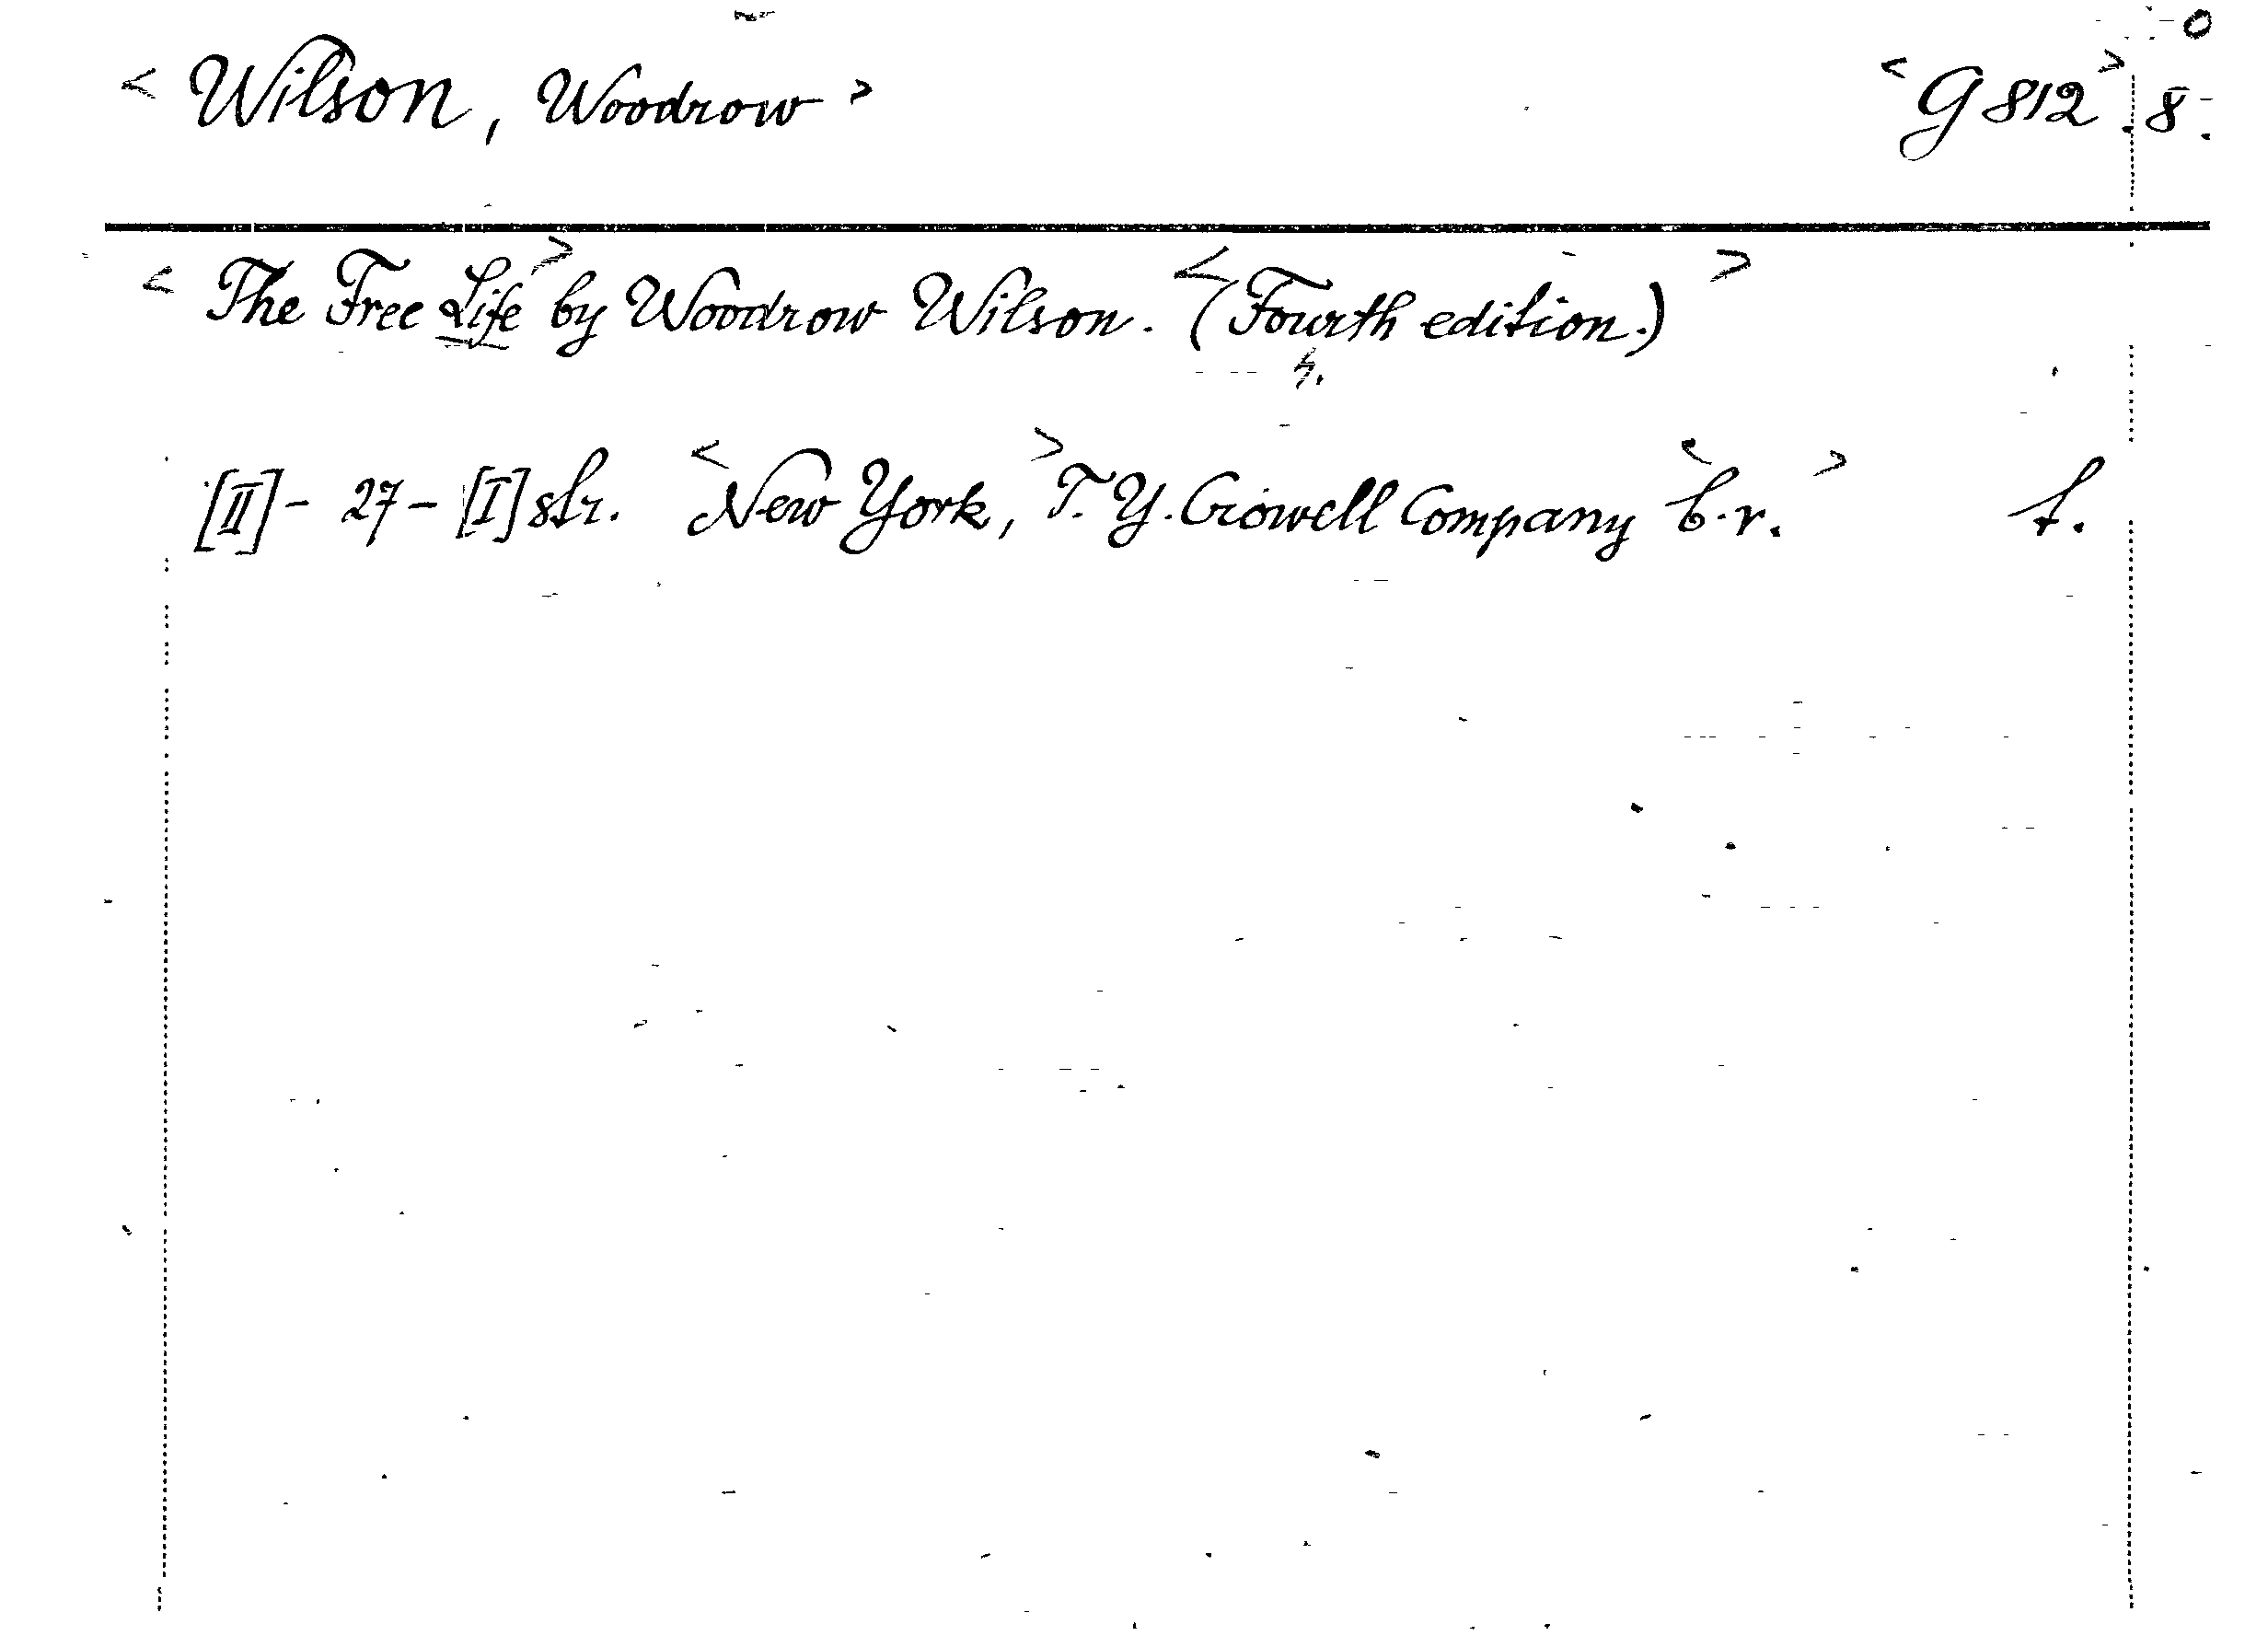 < Wilson, Woodrow > < G 812 > . 8.
< The Free Life > by Woodrow Wilson. < (Fourth edition.) >
4.
[II] - 27 - [I] str. < New York, > T. Y. Crowell Company < b. r. > f.